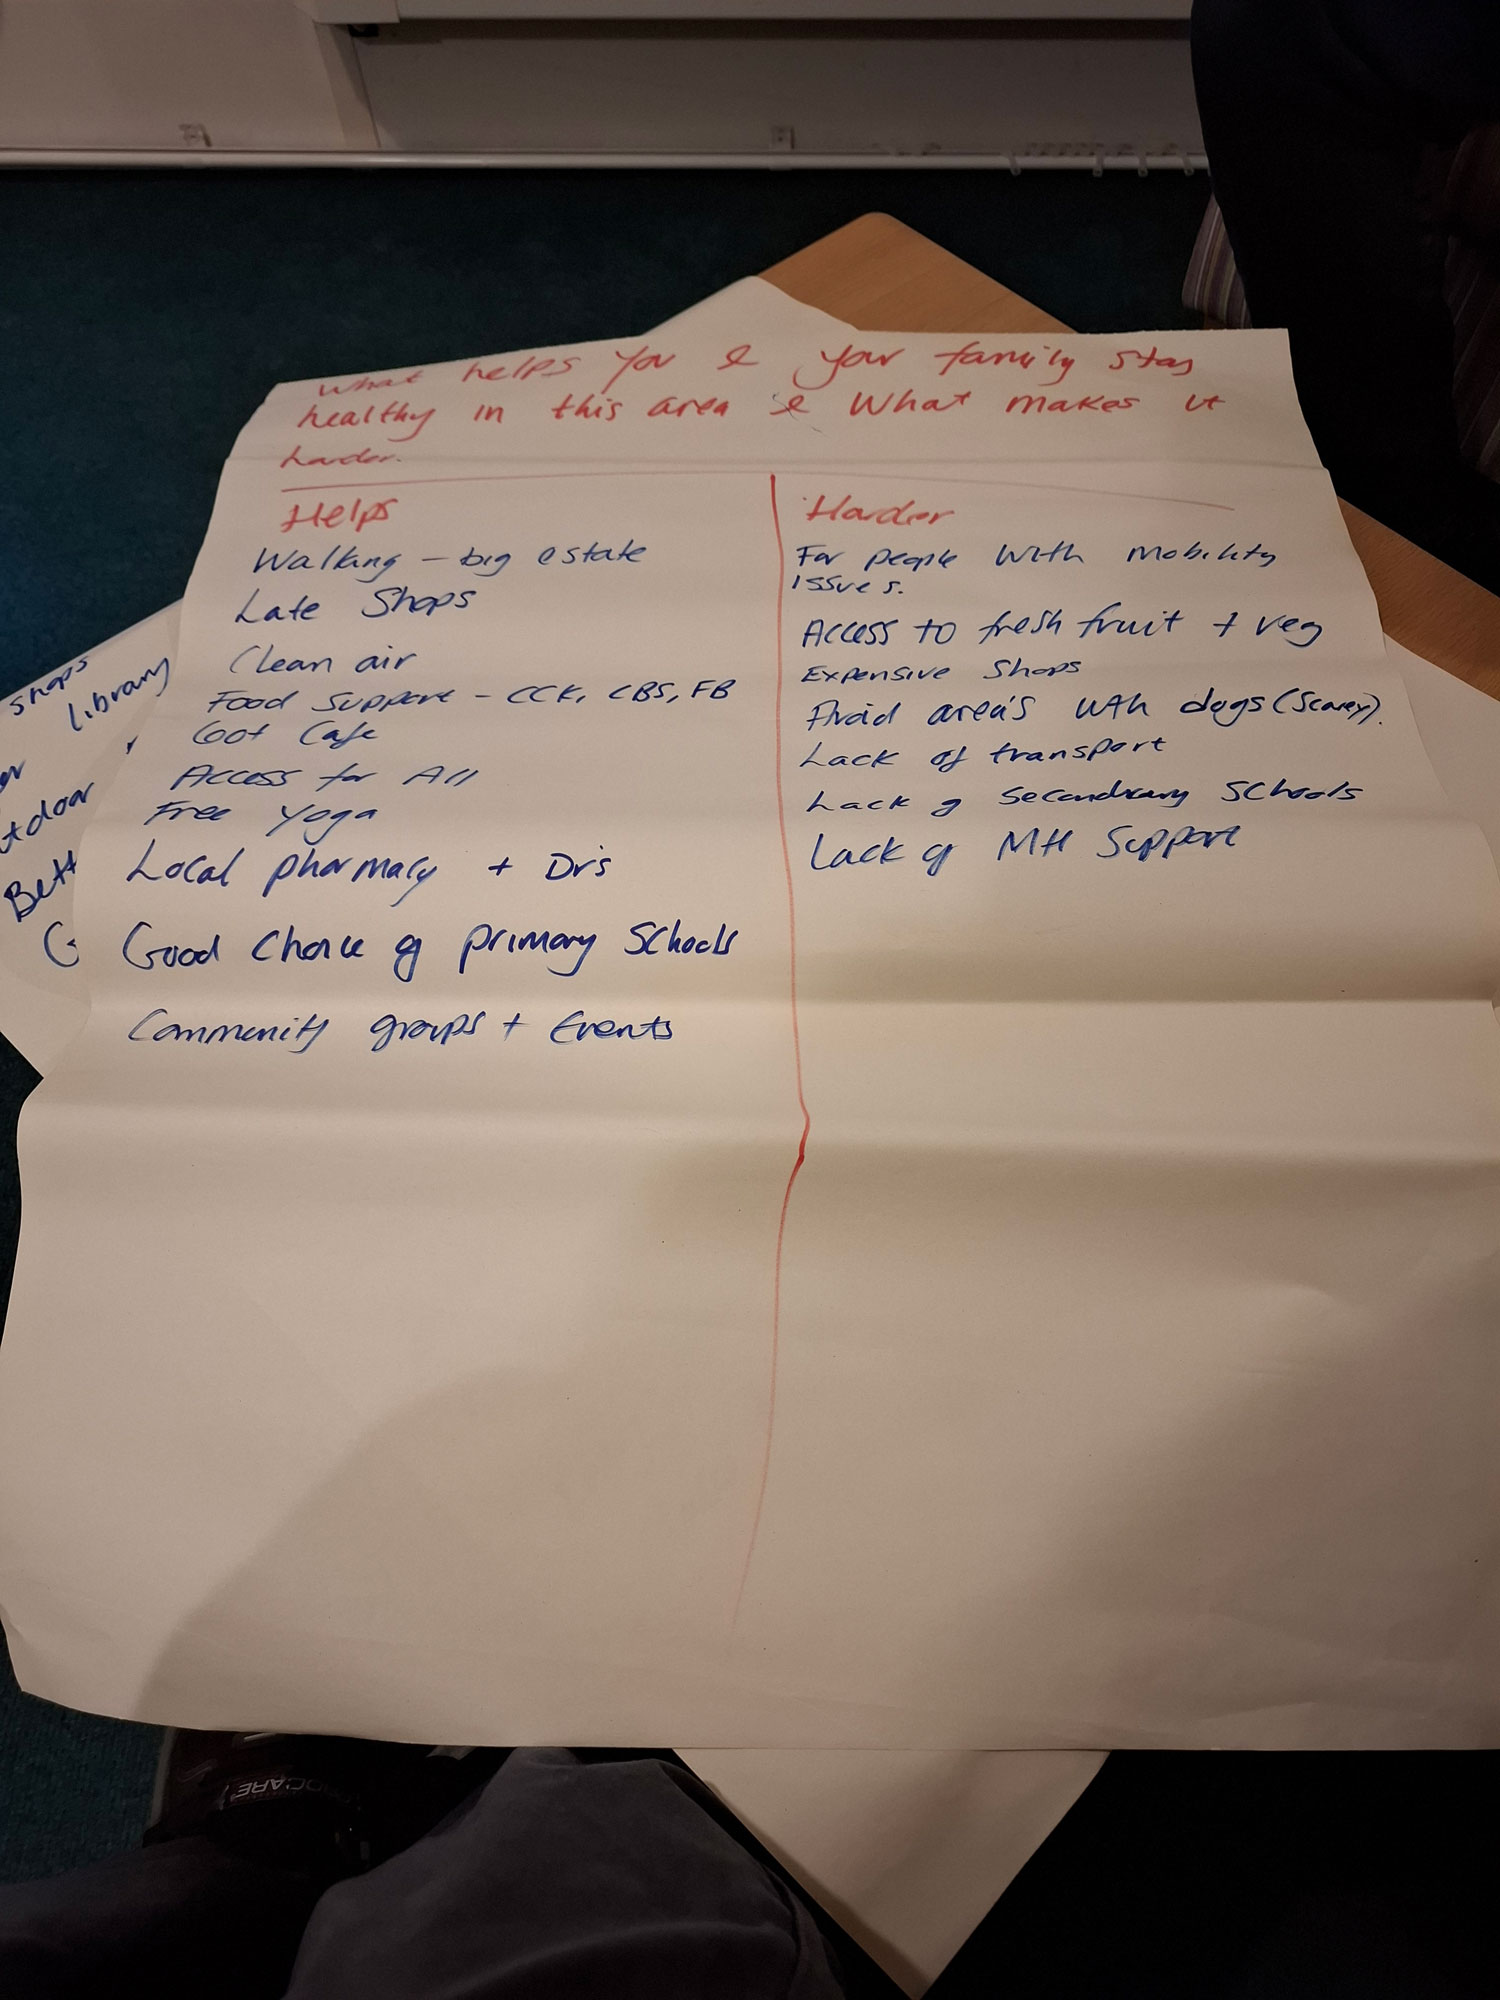 What helps you & your family stay
healthy in this area & What makes it
harder.
Helps
Walking - big estate
Late Shops
Clean air
Food Support - CCK, CBS, FB
Got Cafe
Access for All
Free Yoga
Local pharmacy + Dr's
Good Choice of primary Schools
Community groups + Events
Harder
For people with mobility
issues.
Access to fresh fruit + veg
Expensive Shops
Avoid area's with dogs (Scarey).
Lack of transport
Lack of Secondary Schools
Lack of MH Support
shops
library
Bett